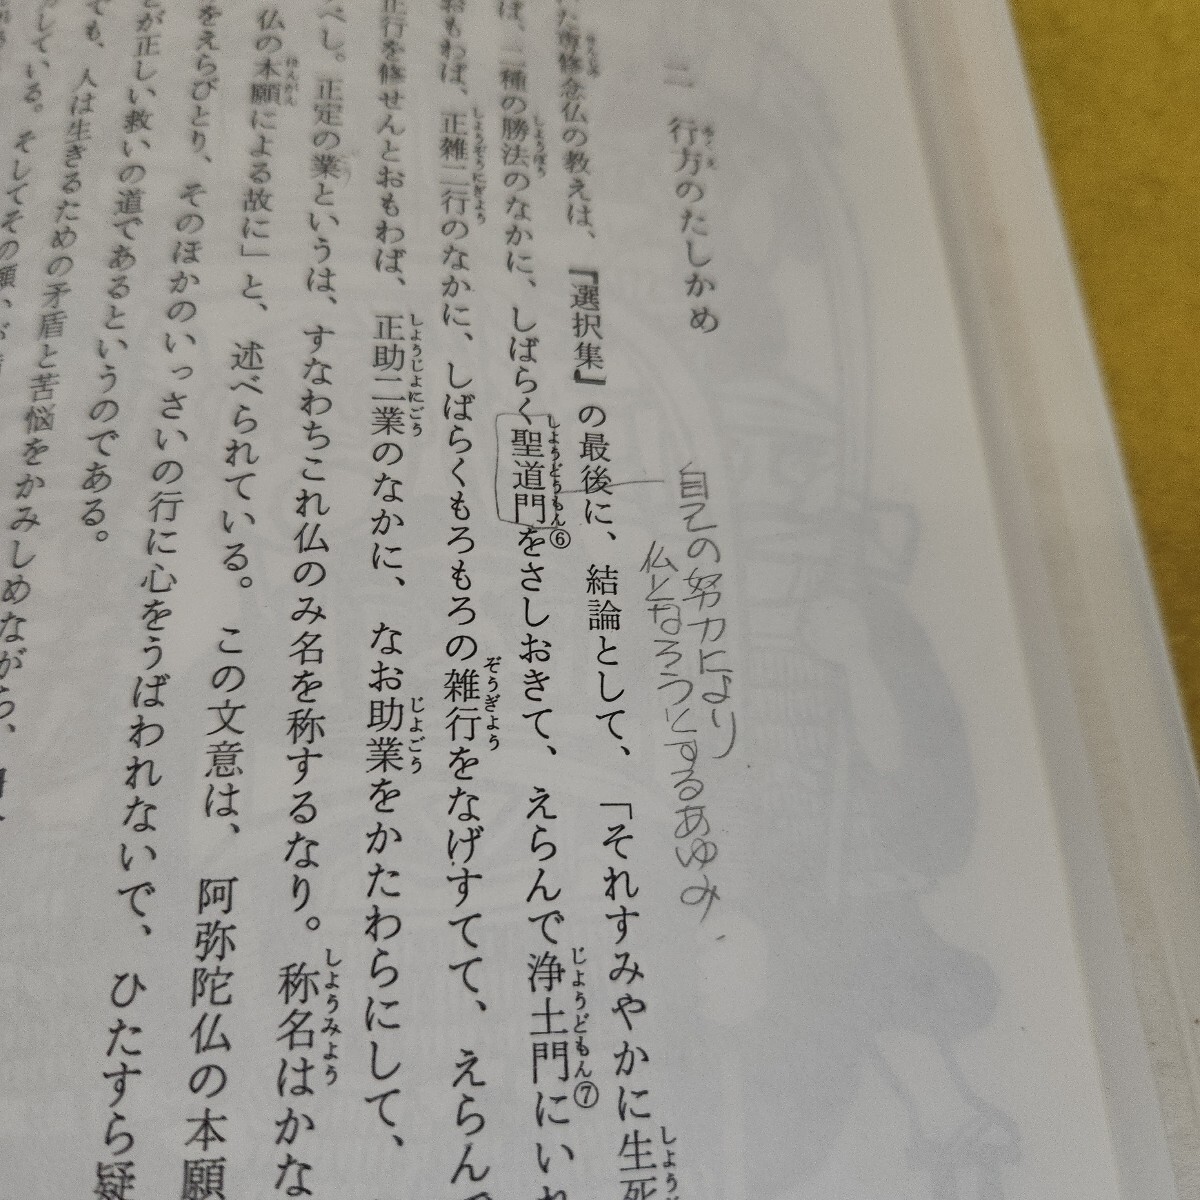 二 行方のたしかめ
自己の努力により
仏となろうとするあゆみ
た専修念仏の教えは、『選択集』の最後に、結論として、「それすみやかに生死
ば、二種の勝法のなかに、しばらく聖道門⑥をさしおきて、えらんで浄土門⑦にいれ
おもわば、正雑二行のなかに、しばらくもろもろの雑行をなげすてて、えらんで
正行を修せんとおもわば、正助二業のなかに、なお助業をかたわらにして、
べし。正定の業というは、すなわちこれ仏のみ名を称するなり。称名はかな
仏の本願による故に」と、述べられている。この文意は、阿弥陀仏の本願
をえらびとり、そのほかのいっさいの行に心をうばわれないで、ひたすら疑
が正しい救いの道であるというのである。
でも、人は生きるための矛盾と苦悩をかみしめながら、
している。そしてその願い